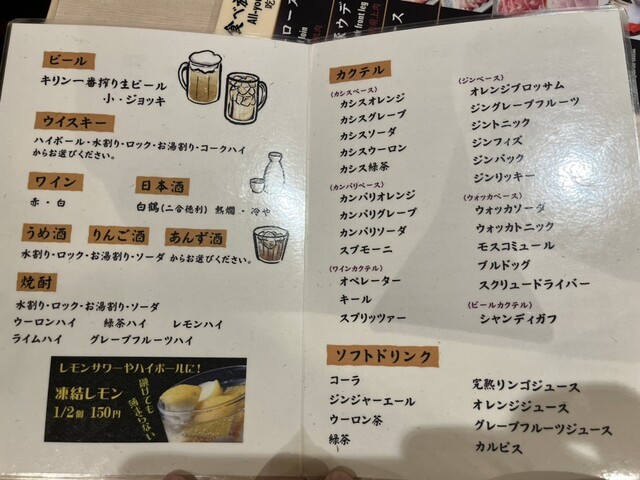 食べ放
All-you
ロース
loin
front leg
ース
ビール
キリン一番搾り生ビール
小・ジョッキ
ウイスキー
ハイボール・水割り・ロック・お湯割り・コークハイ
からお選びください。
ワイン
赤・白
日本酒
白鶴(二合徳利) 熱燗・冷や
うめ酒 りんご酒 あんず酒
水割り・ロック・お湯割り・ソーダ からお選びください。
焼酎
水割り・ロック・お湯割り・ソーダ
ウーロンハイ 緑茶ハイ レモンハイ
ライムハイ グレープフルーツハイ
レモンサワーやハイボールに!
凍結レモン
1/2個 150円
融けても
薄まらない
カクテル
(カシスベース)
カシスオレンジ
カシスグレープ
カシスソーダ
カシスウーロン
カシス緑茶
(カンパリベース)
カンパリオレンジ
カンパリグレープ
カンパリソーダ
スプモーニ
(ワインカクテル)
オペレーター
キール
スプリッツァー
(ジンベース)
オレンジブロッサム
ジングレープフルーツ
ジントニック
ジンフィズ
ジンバック
ジンリッキー
(ウォッカベース)
ウォッカソーダ
ウォッカトニック
モスコミュール
ブルドッグ
スクリュードライバー
(ビールカクテル)
シャンディガフ
ソフトドリンク
コーラ
ジンジャーエール
ウーロン茶
緑茶
完熟リンゴジュース
オレンジジュース
グレープフルーツジュース
カルピス